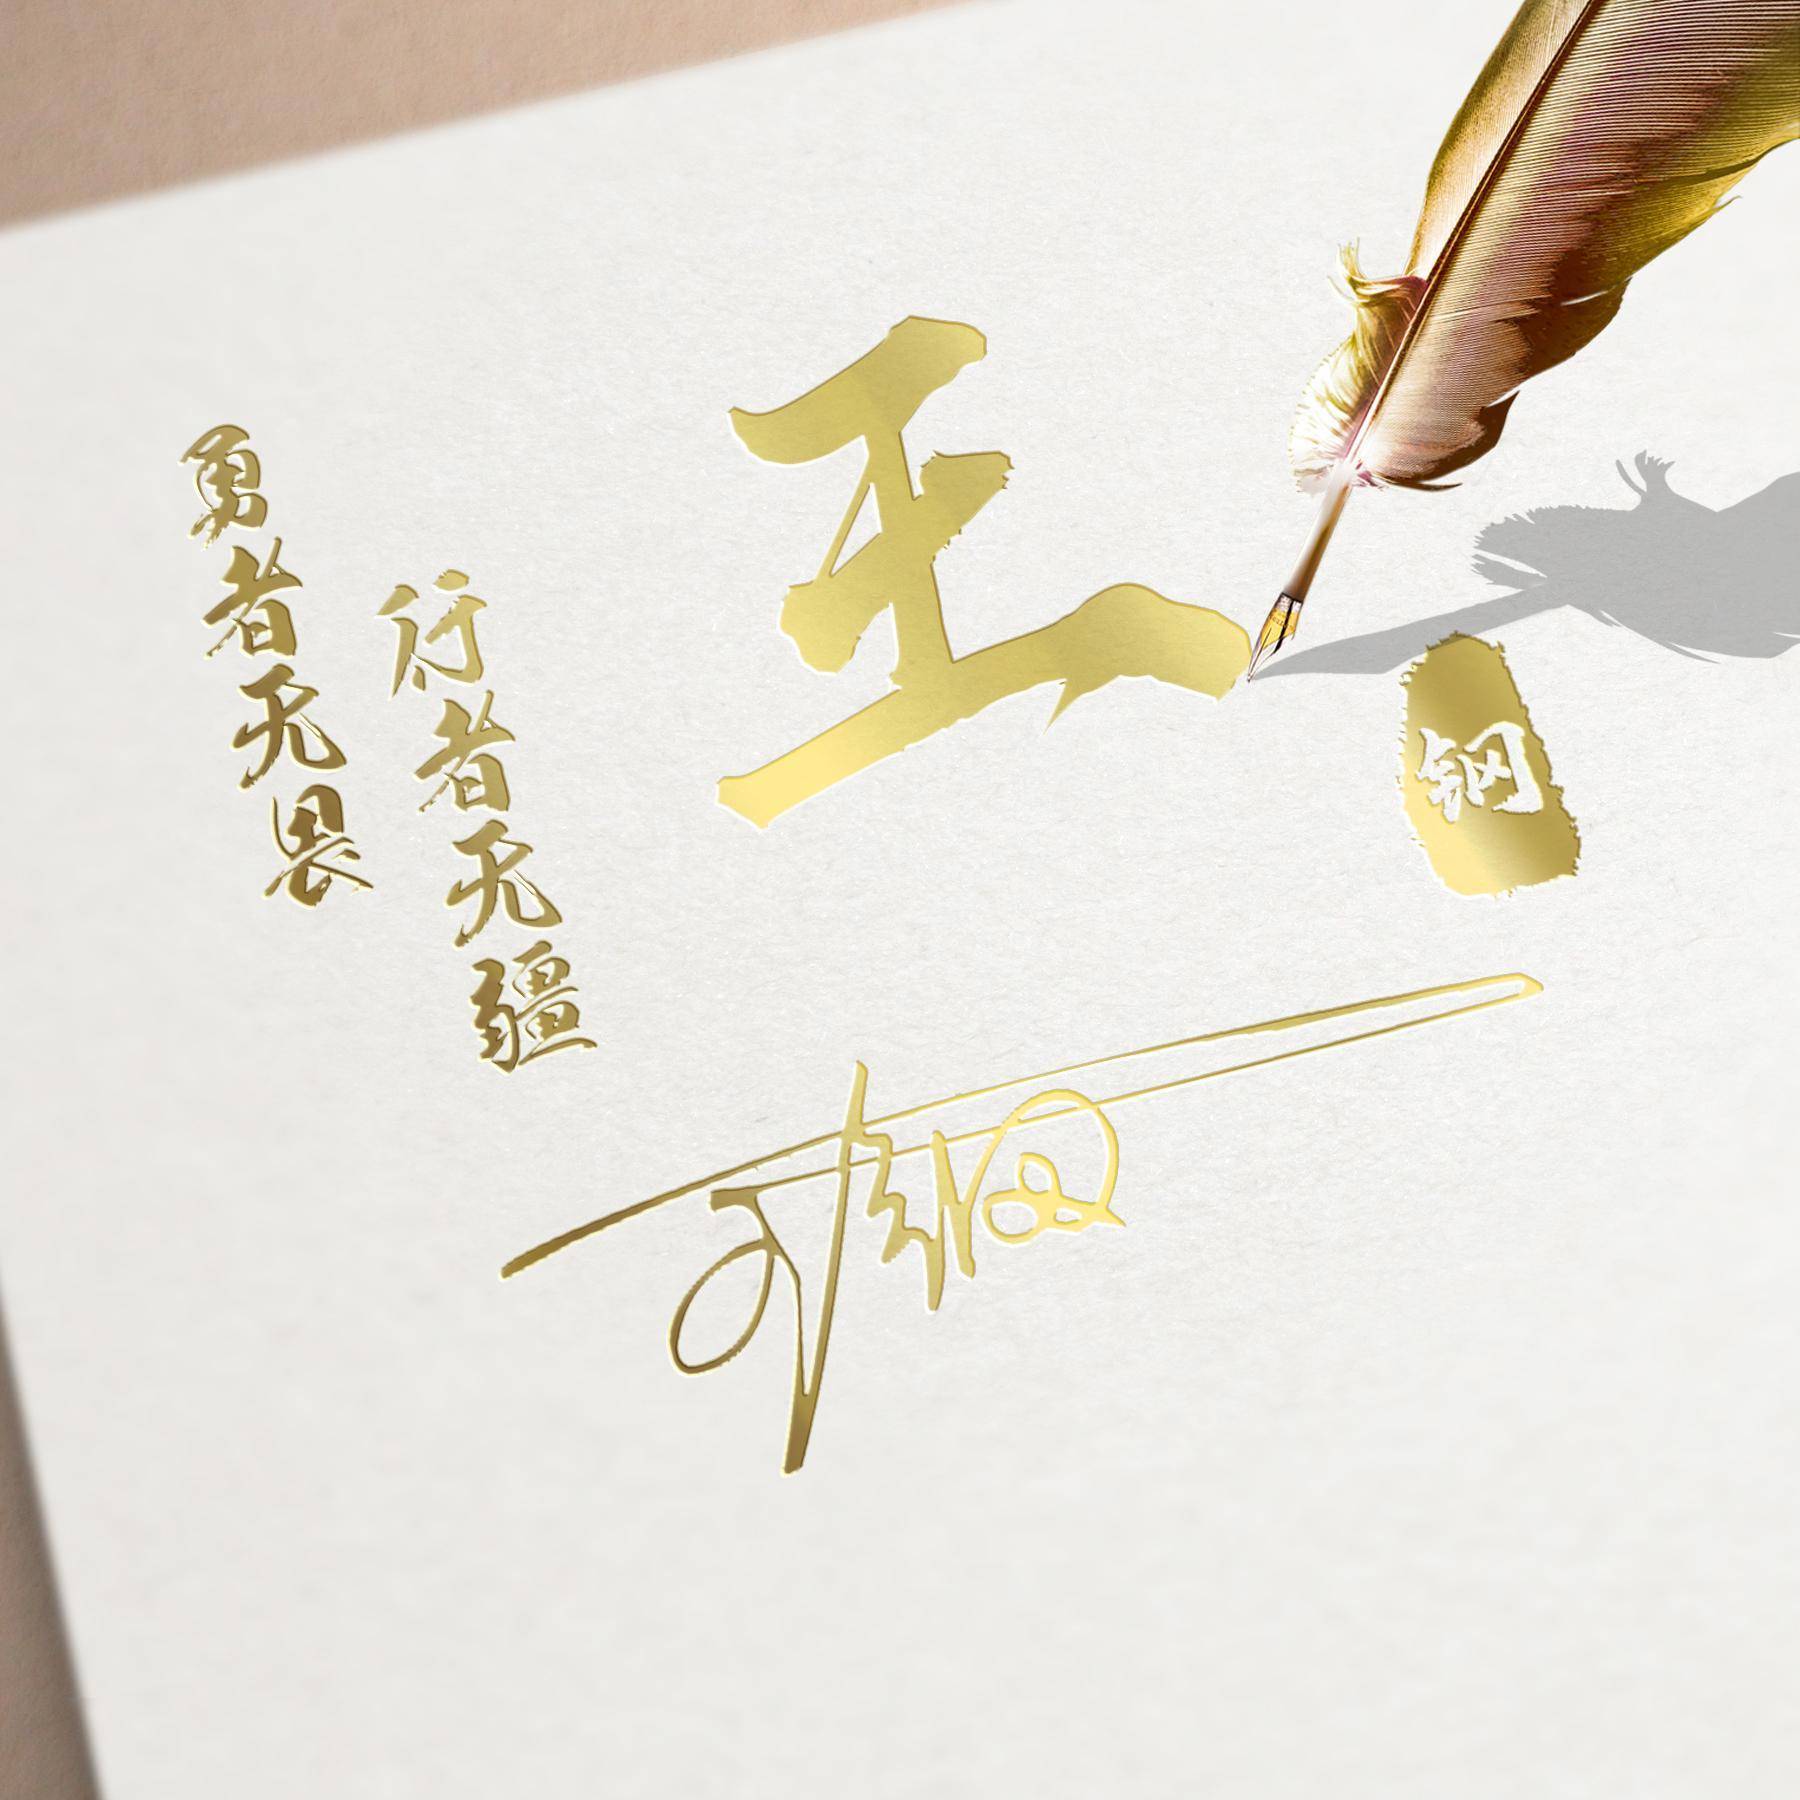 王
钢
勇者无畏
行者无疆